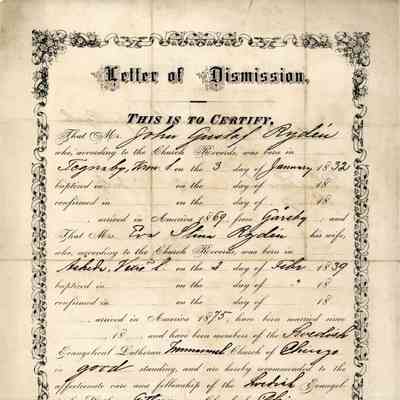 Letter of Dismission.
THIS IS TO CERTIFY,
That Mr. John Gustaf Rydén
who, according to the Church Records, was born in
on the 3 day of January 1832
baptized in on the day of 18
confirmed in on the day of 18
arrived in America 1869, from Gårdby, and
That Mrs. Eva Stina Rydén his wife,
who, according to the Church Records, was born in
on the 2 day of Febr. 1839
baptized in on the day of " 18
confirmed in on the day of 18
arrived in America 1875, have been married since
, 18 and have been members of the Swedish
Evangelical Lutheran Immanuel Church of Chicago
in good standing, and are hereby recommended to the
affectionate care and fellowship of the Swedish Evangel-